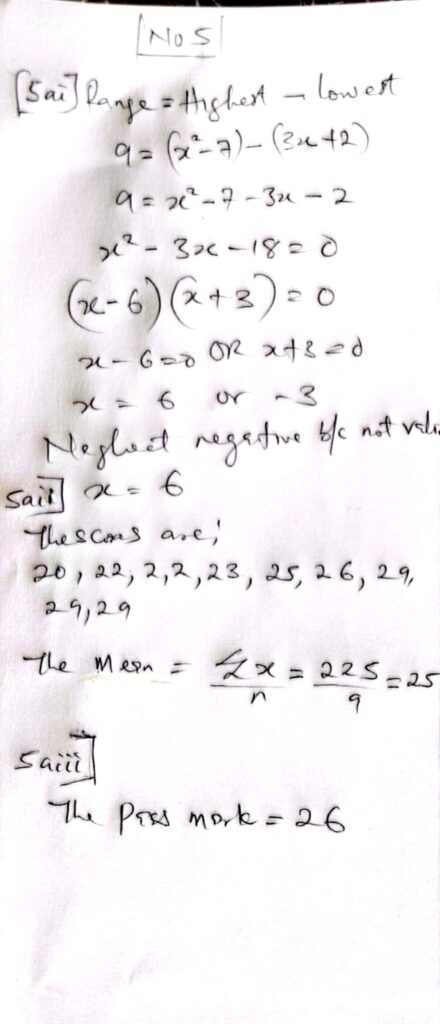 No 5
[5ai] Range = Highest - lowest
9 = (x²-7) - (3x+2)
9 = x² - 7 - 3x - 2
x² - 3x - 18 = 0
(x-6)(x+3) = 0
x - 6 = 0 OR x+3 = 0
x = 6 or -3
Neglect negative b/c not
5aii] x = 6
The scores are;
20, 22, 2,2, 23, 25, 26, 29,
29, 29
The Mean = Σx/n = 225/9 = 25
5aiii]
The Pass mark = 26